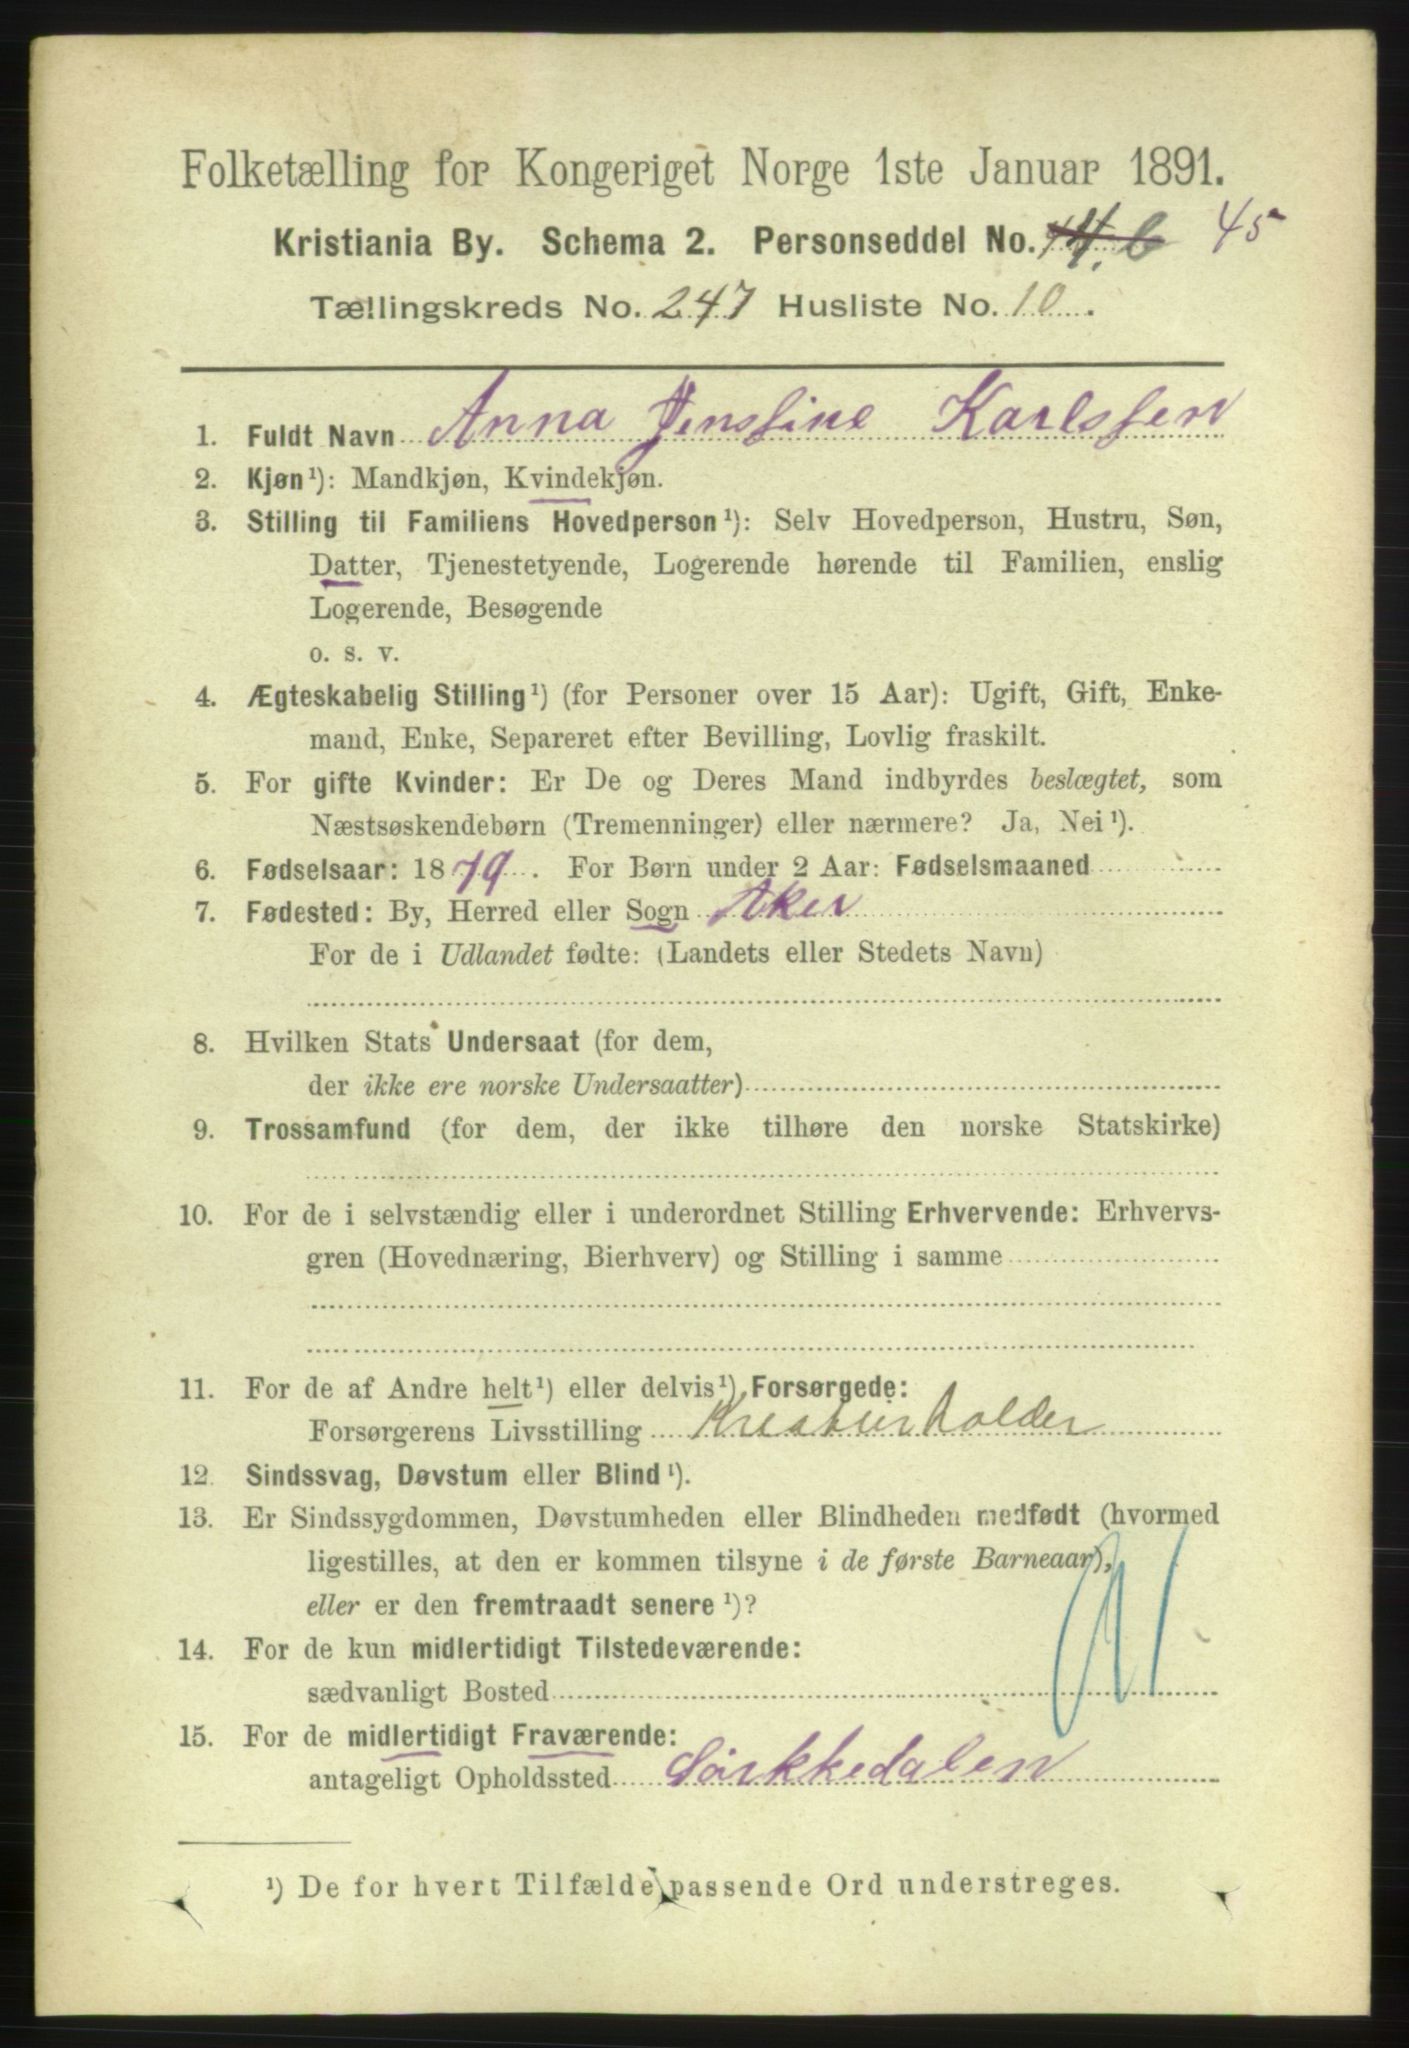 Folketælling for Kongeriget Norge 1ste Januar 1891.
Kristiania By. Schema 2. Personseddel No. 45
Tællingskreds No. 247 Husliste No. 10.
1. Fuldt Navn Anna Jenssine Karlssen
2. Kjøn¹): Mandkjøn, Kvindekjøn.
3. Stilling til Familiens Hovedperson¹): Selv Hovedperson, Hustru, Søn,
Datter, Tjenestetyende, Logerende hørende til Familien, enslig
Logerende, Besøgende
o. s. v.
4. Ægteskabelig Stilling¹) (for Personer over 15 Aar): Ugift, Gift, Enke-
mand, Enke, Separeret efter Bevilling, Lovlig fraskilt.
5. For gifte Kvinder: Er De og Deres Mand indbyrdes beslægtet, som
Næstsøskendebørn (Tremenninger) eller nærmere? Ja, Nei¹).
6. Fødselsaar: 1879. For Børn under 2 Aar: Fødselsmaaned
7. Fødested: By, Herred eller Sogn Aker
For de i Udlandet fødte: (Landets eller Stedets Navn)
8. Hvilken Stats Undersaat (for dem,
der ikke ere norske Undersaatter)
9. Trossamfund (for dem, der ikke tilhøre den norske Statskirke)
10. For de i selvstændig eller i underordnet Stilling Erhvervende: Erhvervs-
gren (Hovednæring, Bierhverv) og Stilling i samme
11. For de af Andre helt¹) eller delvis¹) Forsørgede:
Forsørgerens Livsstilling Kreaturholder
12. Sindssvag, Døvstum eller Blind¹).
13. Er Sindssygdommen, Døvstumheden eller Blindheden medfødt (hvormed
ligestilles, at den er kommen tilsyne i de første Barneaar),
eller er den fremtraadt senere¹)?
14. For de kun midlertidigt Tilstedeværende:
sædvanligt Bosted
15. For de midlertidigt Fraværende:
antageligt Opholdssted Sørkkedalen
¹) De for hvert Tilfælde passende Ord understreges.